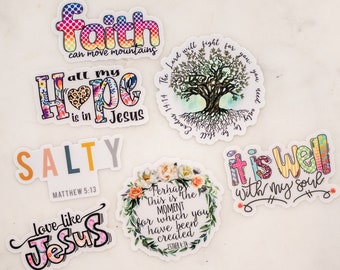 faith
can move mountains
all my
Hope
is in
Jesus
The Lord will fight for you you need
Exodus 14:14
SALTY
MATTHEW 5:13
it is well
with my soul
Perhaps
this is the
MOMENT
for which you
have been
created
ESTHER 4:14
love like
Jesus